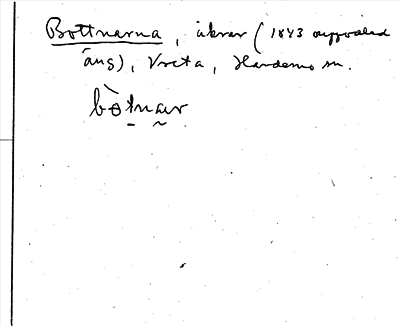 Bottnarna, åkrar (1843 uppodlad
äng), Vreta, Hardemo sn.
bòtnar